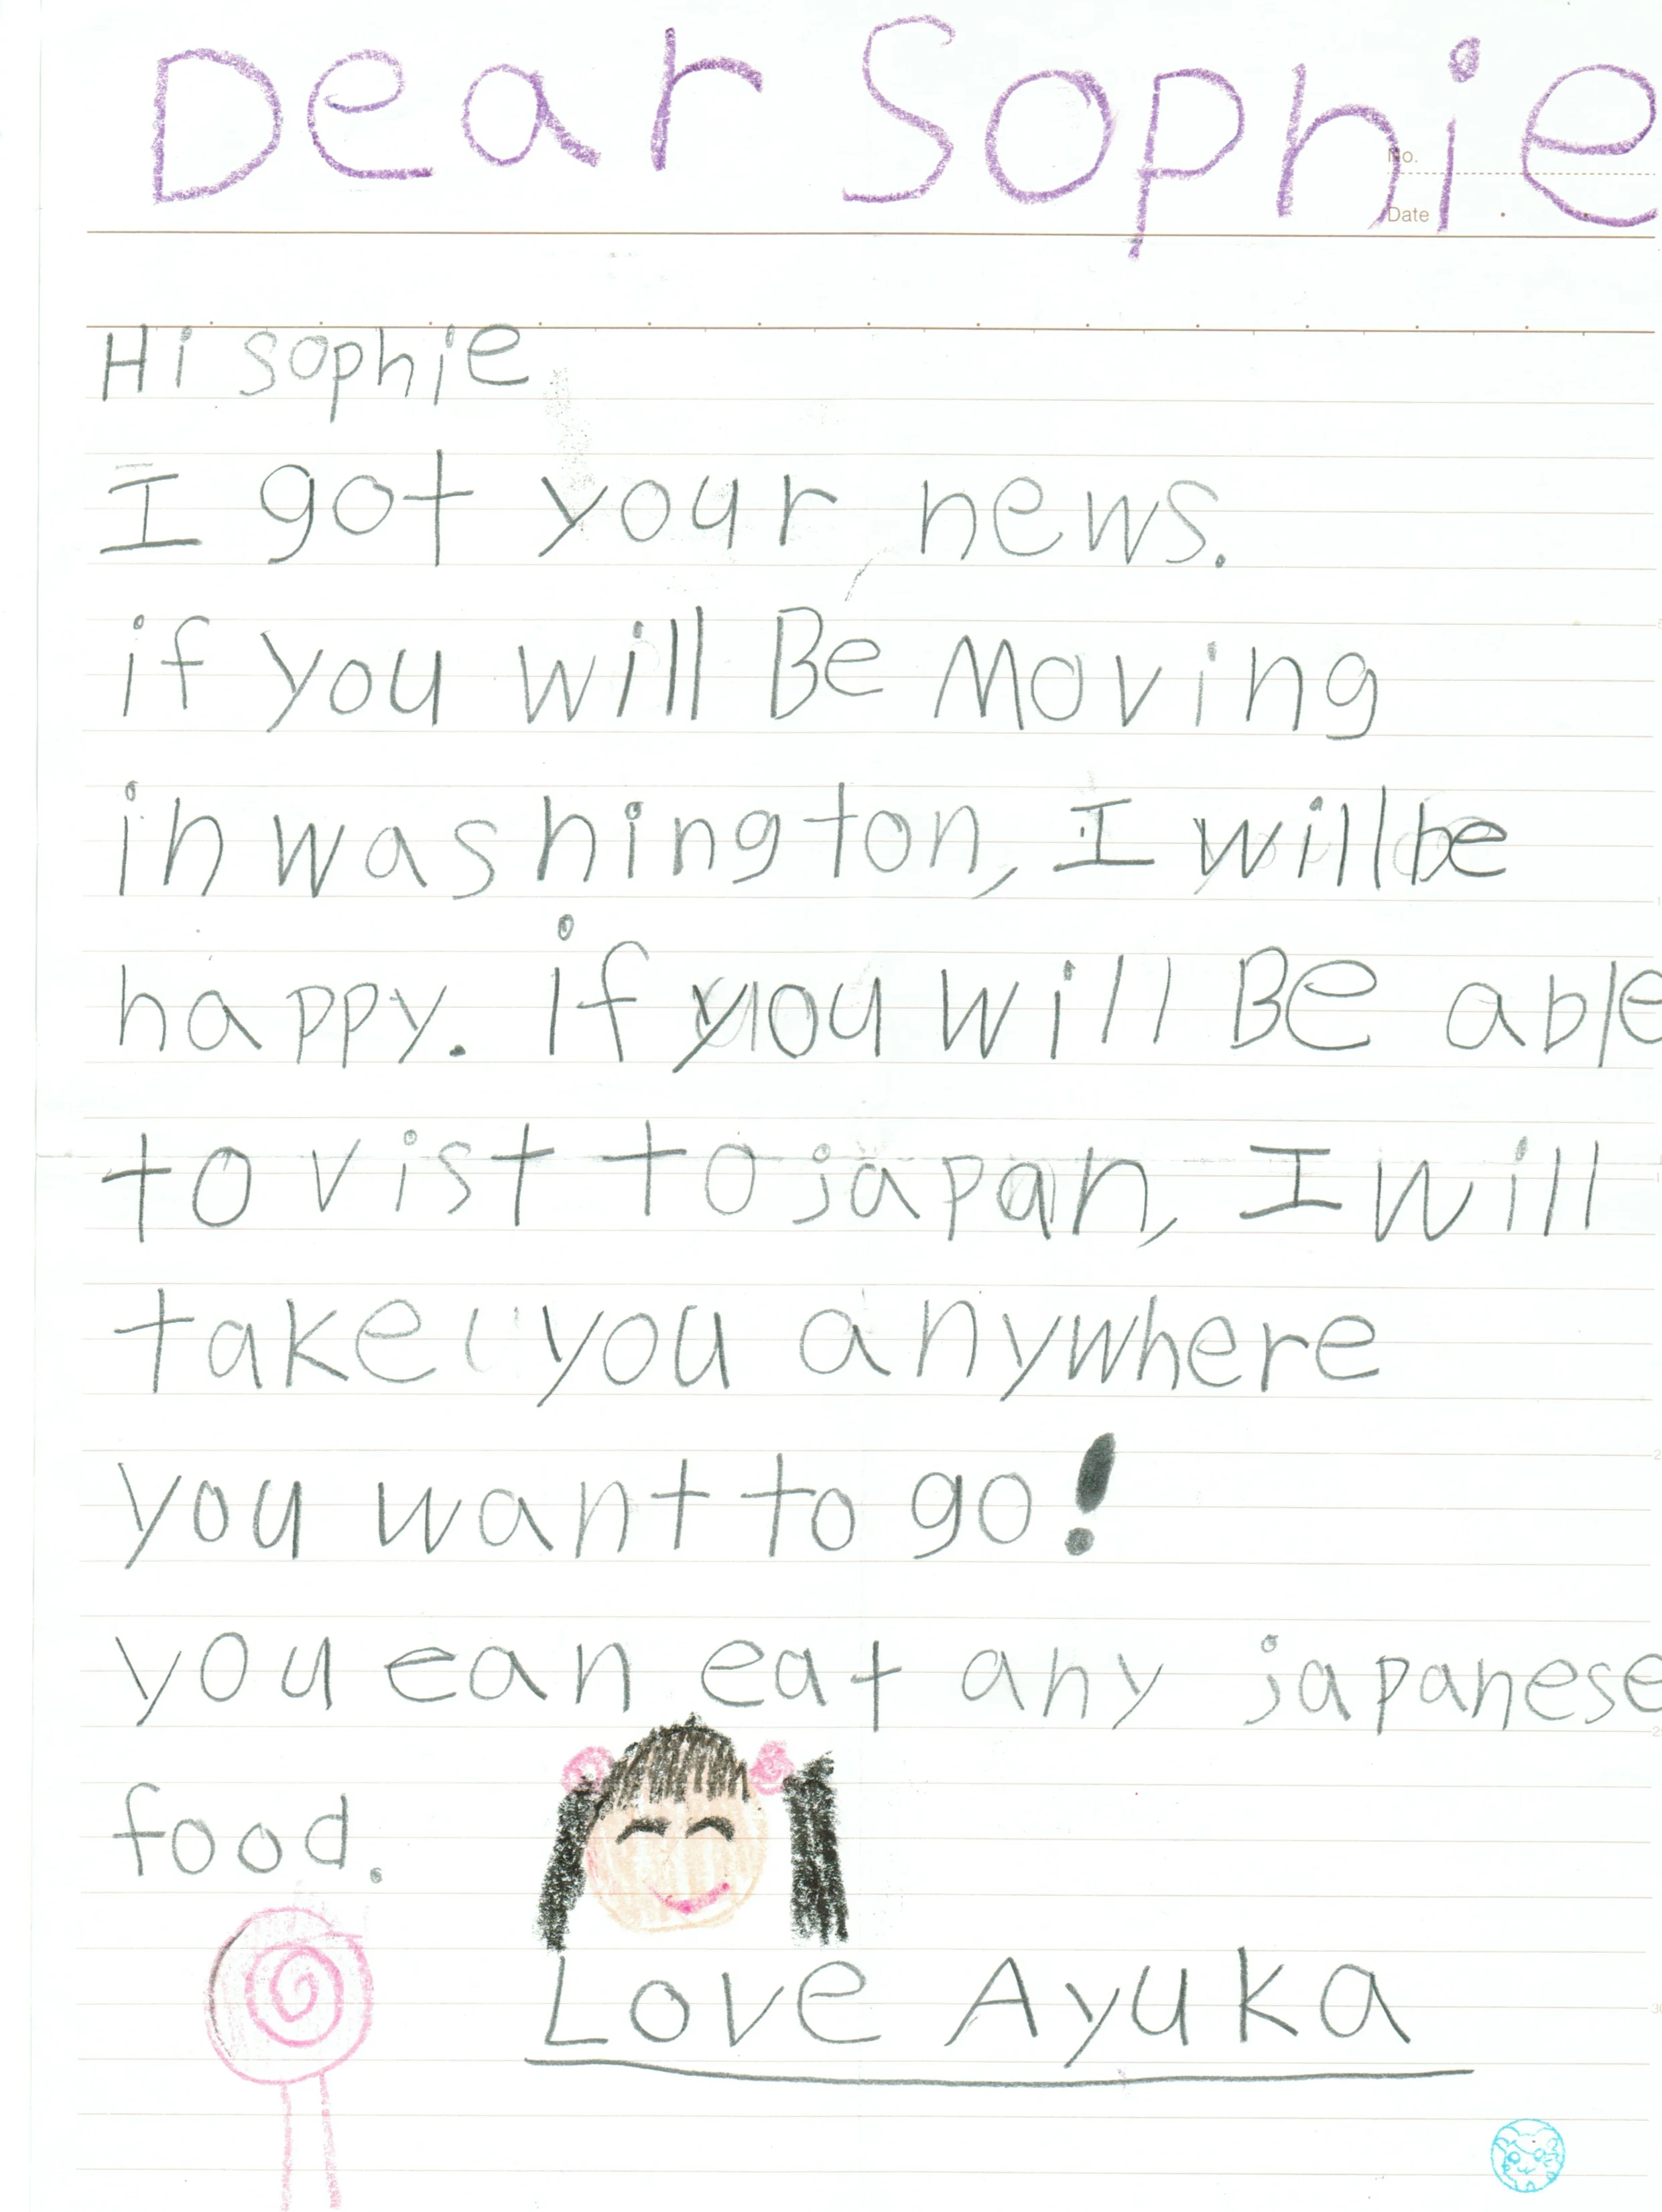 Dear Sophie
No.
Date
Hi sophie
I got your news.
if you will Be Moving
in washington, I will be
happy. if you will BE able
to vist to japan, I will
take you anywhere
you want to go!
you can eat any japanese
food.
Love Ayuka